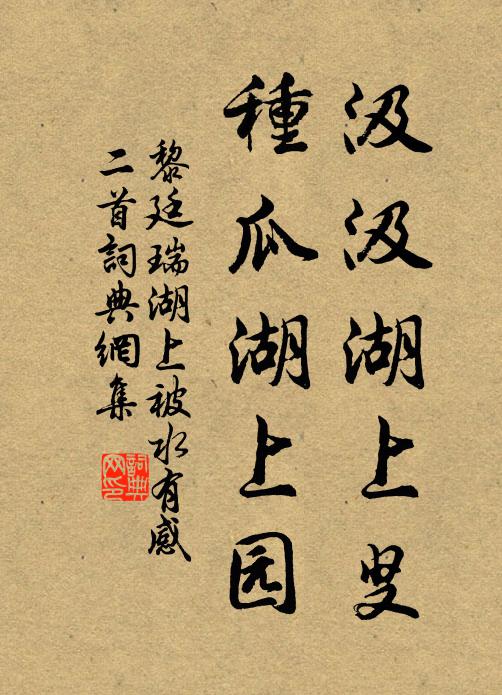 汲汲湖上叟
種瓜湖上园
黎廷瑞湖上被水有感
二首詞典網集
詞典网印